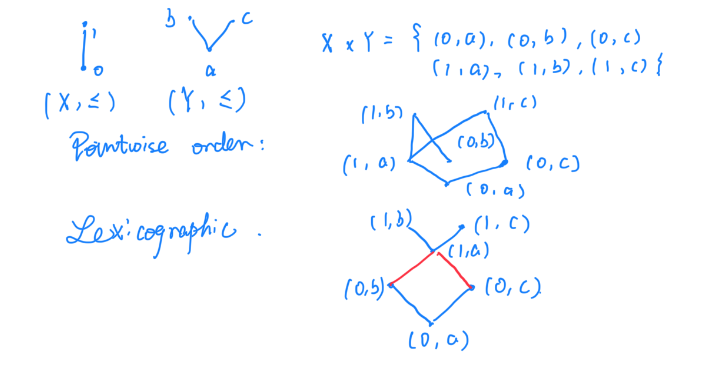 1
b c
0
a
(X, ≤) (Y, ≤)
X × Y = { (0,a), (0,b), (0,c)
(1,a), (1,b), (1,c) }
Pointwise order:
(1,b) (1,c)
(0,b)
(1,a) (0,c)
(0,a)
Lexicographic.
(1,b) (1,c)
(1,a)
(0,b) (0,c)
(0,a)